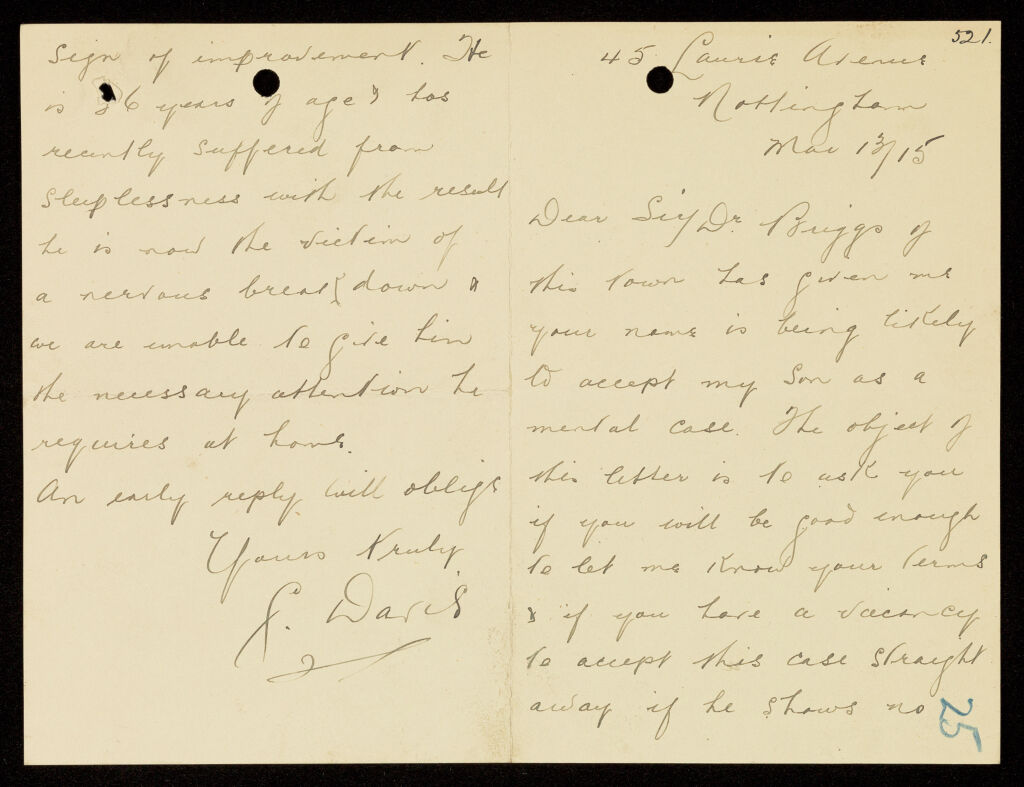 521.
45 Laurie Avenue
Nottingham
Mar 13/15
Dear Sir/ Dr. Briggs of
this town has given me
your name is being likely
to accept my Son as a
mental case. The object of
this letter is to ask you
if you will be good enough
to let me know your terms
& if you have a vacancy
to accept this case straight
away if he shows no
25
sign of improvement. He
is 36 years of age & has
recently suffered from
sleeplessness with the result
he is now the victim of
a nervous break down &
we are unable to give him
the necessary attention he
requires at home.
An early reply will oblige
Yours truly
Davis